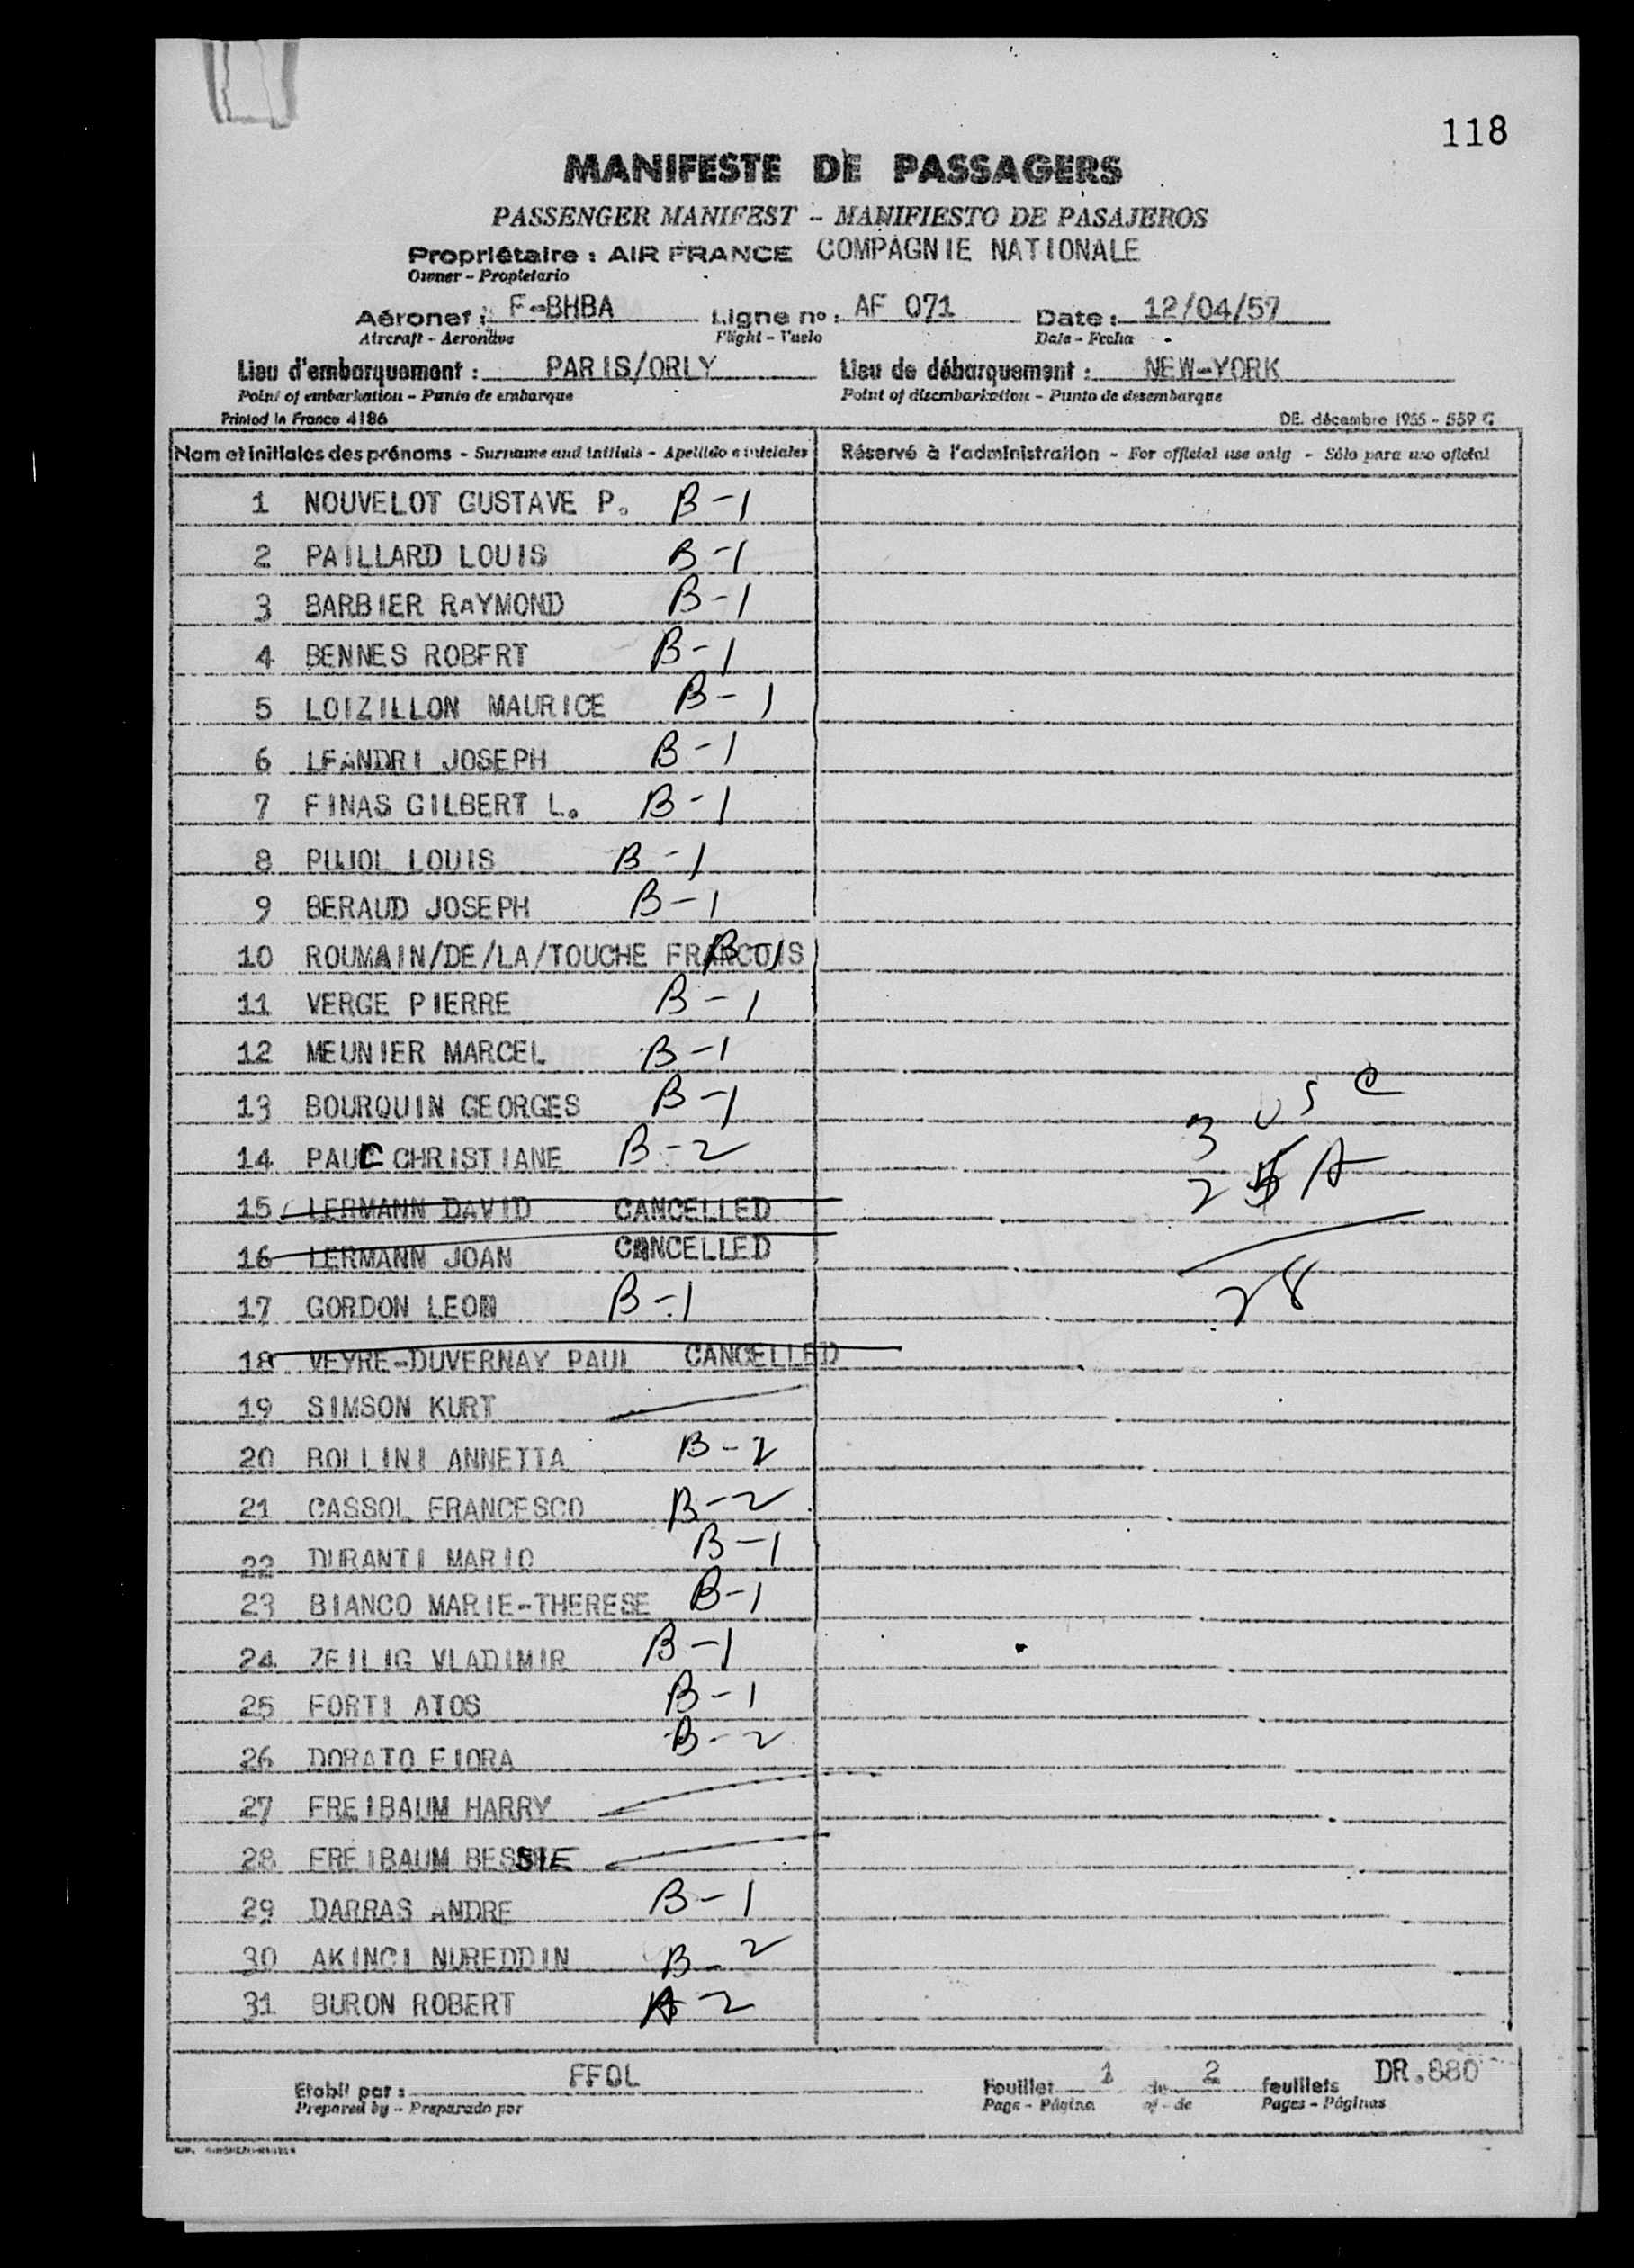 118
MANIFESTE DE PASSAGERS
PASSENGER MANIFEST - MANIFIESTO DE PASAJEROS
Propriétaire : AIR FRANCE COMPAGNIE NATIONALE
Owner - Propietario
Aéronef : F-BHBA Ligne no : AF 071 Date : 12/04/57
Aircraft - Aeronave Flight - Vuelo Date - Fecha
Lieu d'embarquement : PARIS/ORLY Lieu de débarquement : NEW-YORK
Point of embarkation - Punto de embarque Point of disembarkation - Punto de desembarque
Printed in France 4186 DE. décembre 1955 - 559 G
Nom et initiales des prénoms - Surname and initials - Apellido e iniciales Réservé à l'administration - For official use only - Sólo para uso oficial
1 NOUVELOT GUSTAVE P. B-1
2 PAILLARD LOUIS B-1
3 BARBIER RAYMOND B-1
4 BENNES ROBERT B-1
5 LOIZILLON MAURICE B-1
6 LEANDRI JOSEPH B-1
7 FINAS GILBERT L. B-1
8 PUJOL LOUIS B-1
9 BERAUD JOSEPH B-1
10 ROUMAIN/DE/LA/TOUCHE FRANCOIS B-1
11 VERGE PIERRE B-1
12 MEUNIER MARCEL B-1
13 BOURQUIN GEORGES B-1 3 USC
14 PAUC CHRISTIANE B-2 25 A
15 LERMANN DAVID CANCELLED
16 LERMANN JOAN CANCELLED
17 GORDON LEON B-1 28
18 VEYRE-DUVERNAY PAUL CANCELLED
19 SIMSON KURT
20 ROLLINI ANNETTA B-2
21 CASSOL FRANCESCO B-2
22 DURANTI MARIO B-1
23 BIANCO MARIE-THERESE B-1
24 ZEILIG VLADIMIR B-1
25 FORTI ATOS B-1
26 DORATO FIORA B-2
27 FREIBAUM HARRY
28 FREIBAUM BESSIE
29 DARRAS ANDRE B-1
30 AKINCI NUREDDIN B-2
31 BURON ROBERT A-2
Etabli par : FFOL Feuillet 1 de 2 feuillets DR.880
Prepared by - Preparado por Page - Página of - de Pages - Páginas